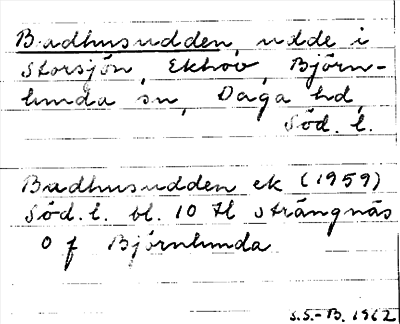 Badhusudden, udde i
Storsjön, Ekhov, Björn-
lunda sn, Daga hd,
Söd. l.
Badhusudden ek (1959)
Söd. l. bl. 10 Il Strängnäs
O f Björnlunda
S.S.-B. 1962